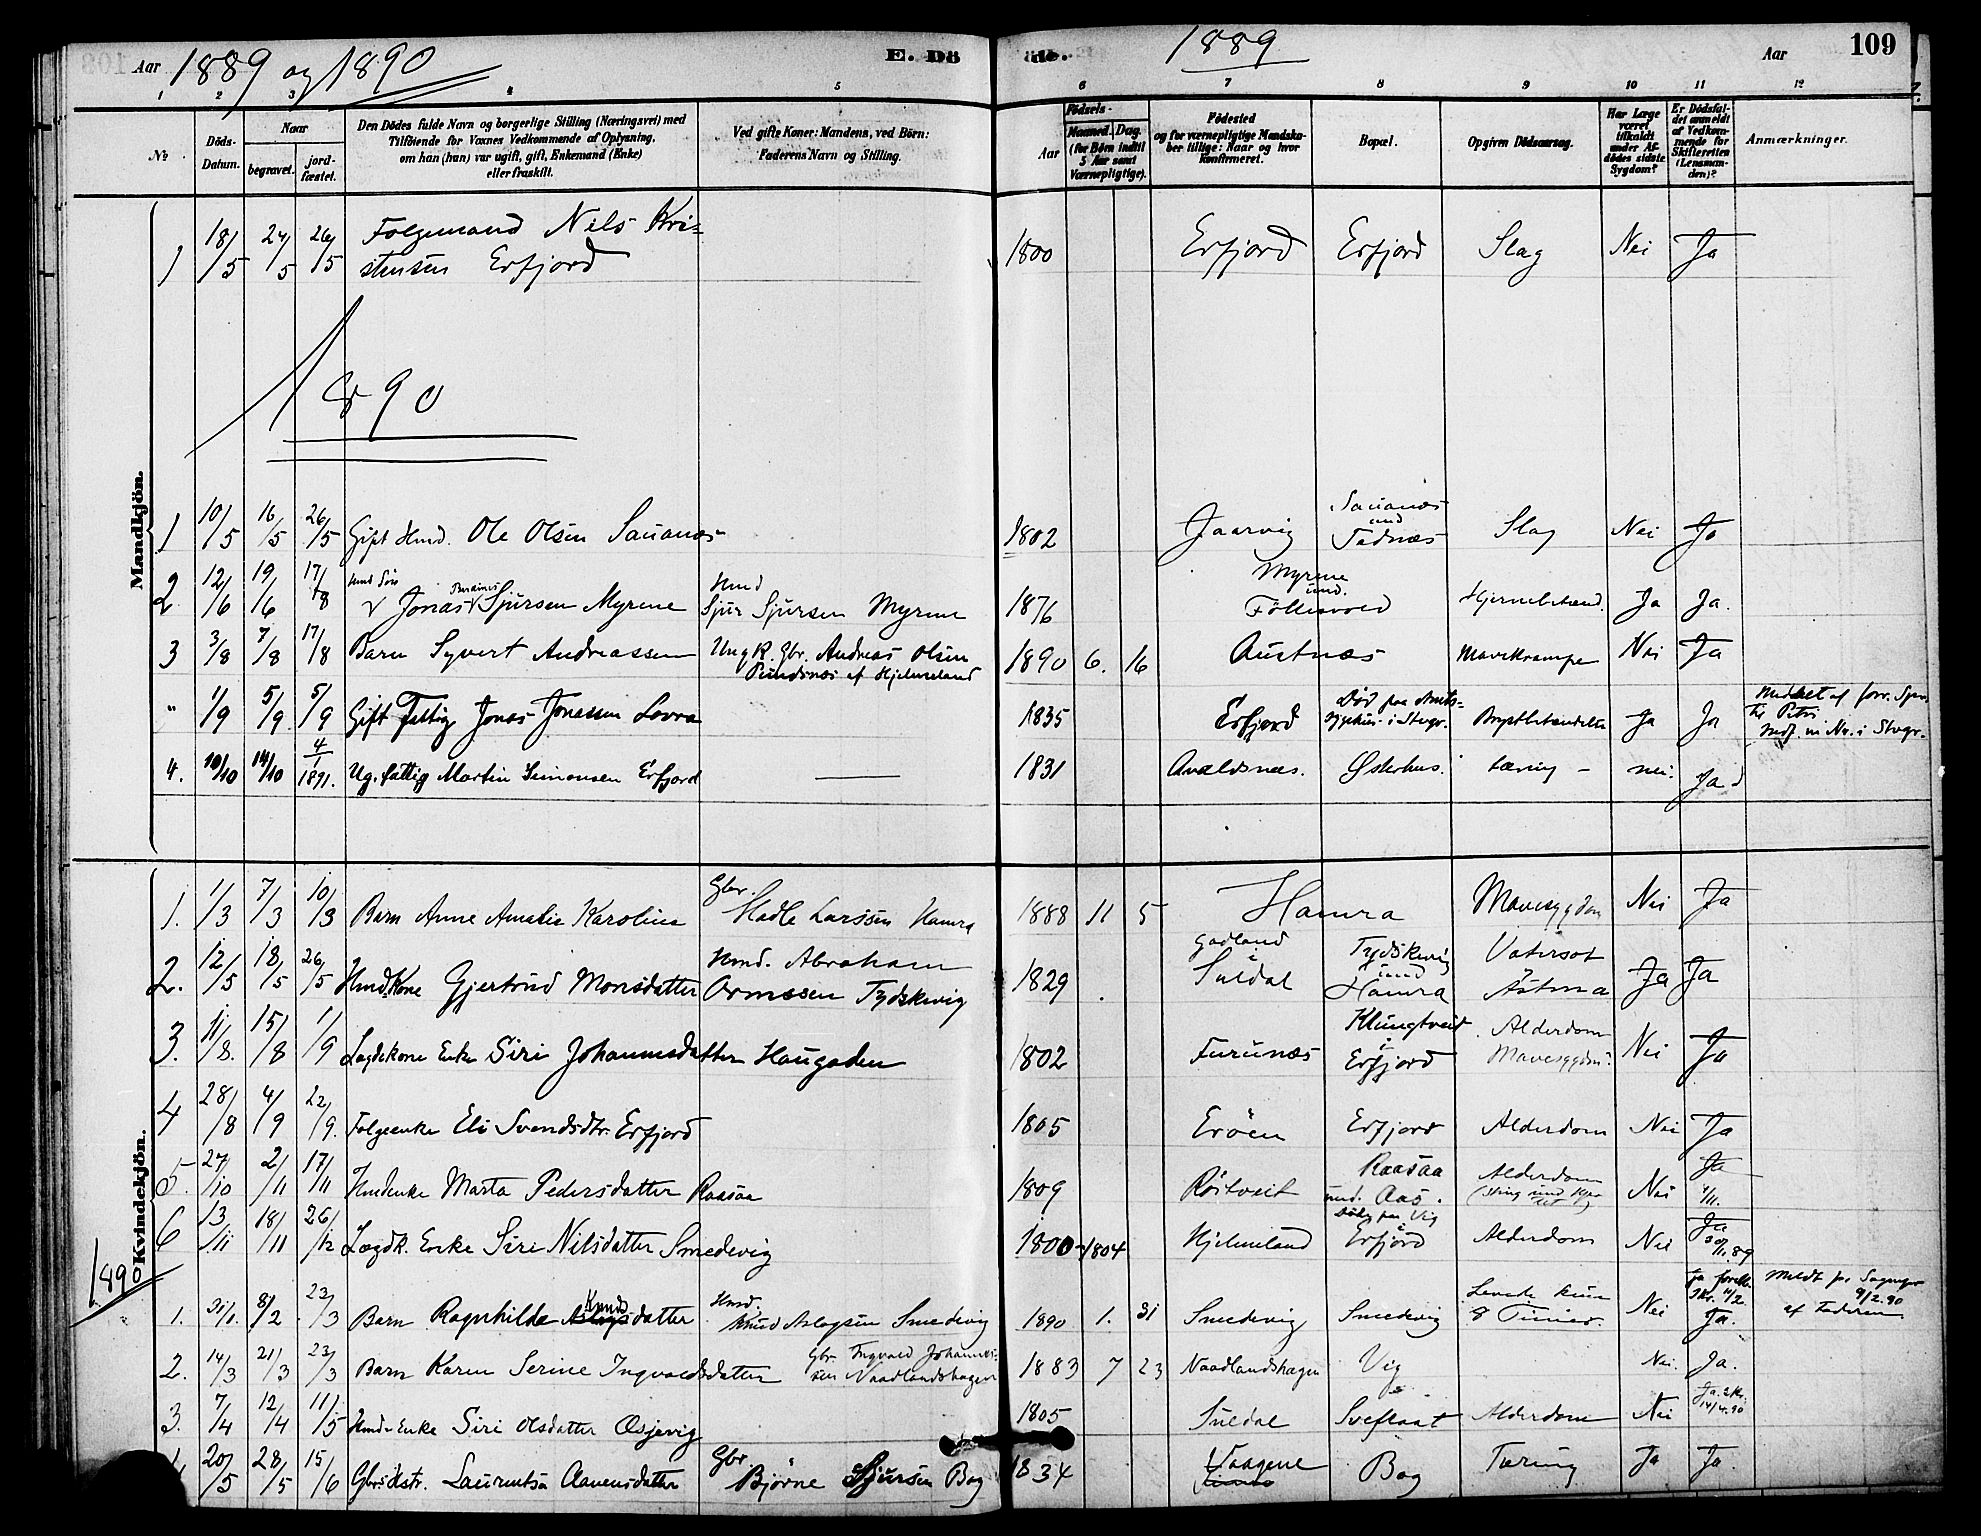 Aar 1889 og 1890 E. Dö
de. 1889 Aar 109
1 2 3 4 5 6 7 8 9 10 11 12
№
Döds-
Datum.
Naar
begravet.
jord-
fæstet.
Den Dödes fulde Navn og borgerlige Stilling (Næringsvei) med
Tilföiende for Voxnes Vedkommende af Oplysning,
om han (hun) var ugift, gift, Enkemand (Enke)
eller fraskilt.
Ved gifte Koner: Mandens, ved Börn:
Faderens Navn og Stilling.
Födsels-
Aar
Maaned. Dag.
(for Börn indtil
5 Aar samt
Værnepligtige).
Födested
og for værnepligtige Mandska-
ber tillige: Naar og hvor
konfirmeret.
Bopæl.
Opgiven Dödsaarsag.
Har Læge
været
tilkaldt
under Af-
dödes sidste
Sygdom?
Er Dödsfal-
det anmeldt
af Vedkom-
mende for
Skifteretten
(Lensman-
den)?
Anmærkninger.
Mandkjön.
1 18/5 24/5 26/5 Folgemand Nils Kri-
stensen Erfjord 1800 Erfjord Erfjord Slag Nei Ja
1890
1 10/5 16/5 26/5 Gift Hmd. Ole Olsen Sauanæs 1802 Jaarvig Sauanæs
und
Tednæs Slag Nei Ja
2 12/6 19/6 17/8 Hmd Søn
Jonas Sjursen Myrene Hmd
Sjur Sjursen Myrene 1876 Myrene
und.
Ja Ja.
3 3/8 7/8 17/8 Barn Syvert Andreassen Ungk. Gbr. Andreas Olsen
Pundsnes af Hjelmeland 1890 6. 16 Austnæs Mavekrampe Nei Ja
" 1/9 5/9 5/9 Gift Fattig Jonas Jonassen Lovra 1835 Erfjord Død paa Amts-
sygehus i Stvgr. Brystbetændelse Ja Ja
Petri
4. 10/10 14/10 4/1
1891. Ug. fattig Martin Simonsen Erfjord 1831 Avaldsnæs. Østerhus. tæring – nei. Ja
Kvindekjön.
1. 1/3 7/3 10/3 Barn Anne Amalie Karoline Gbr.
Hadle Larssen Hamra 1888 11 5 Hamra Mavesygdom Nei Ja
2. 12/5 18/5 26/5 Hmd Kone Gjertrud Monsdatter Hmd. Abraham
Ormssen Tydskevig 1829 Gadland
i
Suldal Tydskevig
und
Hamra Vatersot
Astma Ja Ja
3. 11/8. 15/8 1/9 Lægdekone Enke Siri Johannesdatter Haugaden 1802 Furunæs Klungtveit
i
Erfjord Alderdom
Mavesygdom Nei Ja
4 28/8 4/9 22/9. Folgeenke Eli Svendsdtr. Erfjord 1805 Erøen Erfjord Alderdom Nei Ja
5. 27/10 2/11 17/11 Hmdenke Marta Pedersdatter Raasaa 1809 Røitveit Raasaa
und. Aas. Alderdom Nei Ja
6 13/11 18/11 26/12 Lægdk. Enke Siri Nilsdatter Smedevig 1800-1804 Hjelmeland Vig
i
Erfjord Alderdom Nei Ja
30/11.89
1890
1. 31/1. 8/2 23/3 Barn Ragnhilde Knudsdatter Hmd.
Knud Aslagsen Smedevig 1890 1. 31 Smedevig Smedevig Levede kun
8 Timer. Nei Ja. Meldt
9/2.90
af Faderen
2. 14/3 21/3 23/3 Barn Karen Serine Ingvaldsdatter Gbr. Ingvald Johannes-
sen Naadlandshagen 1883 7 23 Naadlandshagen Vig Nei. Ja.
3. 7/4 12/4 11/5 Hmds Enke Siri Olsdatter Osjevig 1805 Suldal Sveflaat Alderdom Nei Ja. 2 Kr.
14/4.90
20/5 28/5 15/6 Laurentsa Aanensdatter Gbr.
Bjørne Sjursen Bog 1834 Vaagene Bog Tæring Ja Ja.